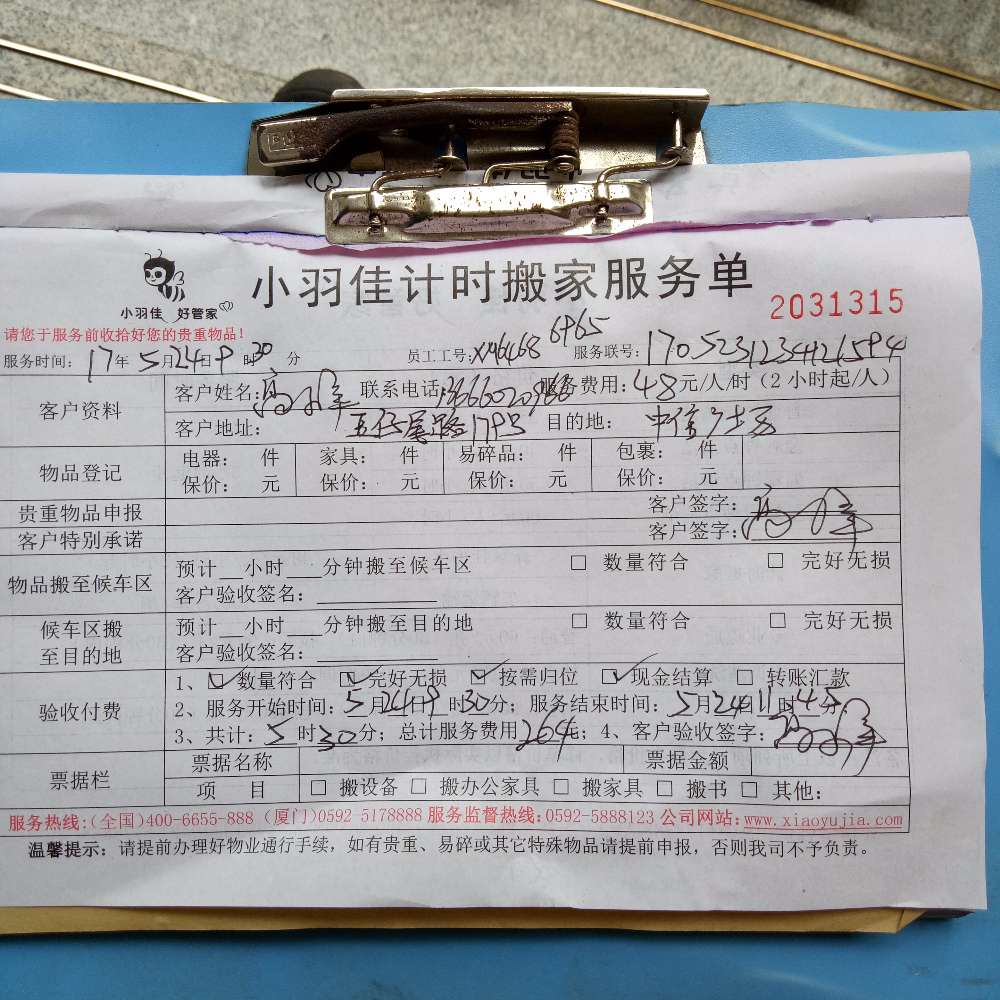 小羽佳 好管家
小羽佳计时搬家服务单
2031315
请您于服务前收拾好您的贵重物品！
服务时间：17年5月24日9时30分 员工工号：XM6468 6965 服务联号：
客户资料 客户姓名： 联系电话： 服务费用：48元/人/时（2小时起/人）
客户地址： 目的地：
物品登记 电器： 件 家具： 件 易碎品： 件 包裹： 件
保价： 元 保价： 元 保价： 元 保价： 元
贵重物品申报 客户签字：
客户特别承诺 客户签字：
物品搬至候车区 预计__小时___分钟搬至候车区 □ 数量符合 □ 完好无损
客户验收签名：
候车区搬至目的地 预计__小时___分钟搬至目的地 □ 数量符合 □ 完好无损
客户验收签名：
验收付费 1、☑数量符合 ☑完好无损 ☑按需归位 ☑现金结算 □ 转账汇款
2、服务开始时间：5月24日9时30分；服务结束时间：5月24日11时45分
3、共计：5时30分；总计服务费用264元；4、客户验收签字：
票据栏 票据名称 票据金额
项 目 □ 搬设备 □ 搬办公家具 □ 搬家具 □ 搬书 □ 其他：
服务热线：(全国)400-6655-888 (厦门)0592-5178888 服务监督热线：0592-5888123 公司网站：www.xiaoyujia.com
温馨提示：请提前办理好物业通行手续，如有贵重、易碎或其它特殊物品请提前申报，否则我司不予负责。